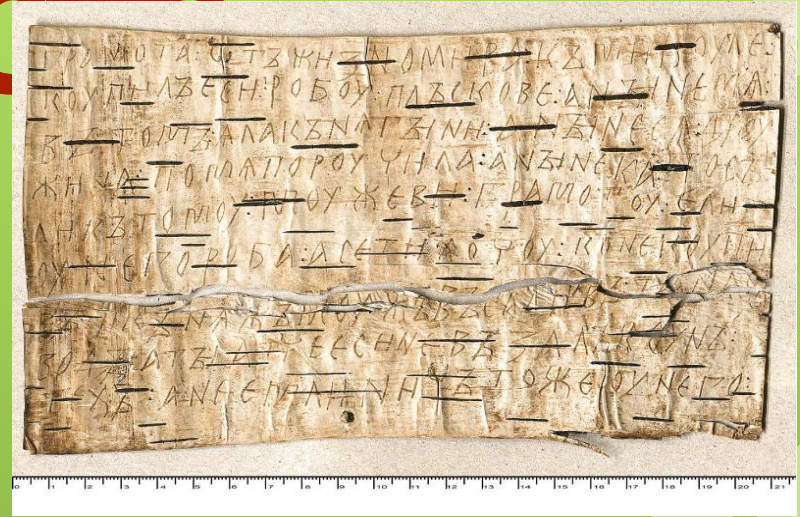 ГРАМОТА : ѠТЪ ЖИЗНОМИРА : КЪ МИКОУЛЕ :
КОУПИЛЪ ЕСИ : РОБОУ : ПЛЪСКОВЕ : А НЫНЕ МѦ :
ВЪ ТОМЪ : ѦЛА КЪНѦГЫНИ : А НЫНЕ СѦ ДРОУ
ЖИНА : ПО МѦ ПОРОУЧИЛА : А НЫНЕ КА : ПОСЪ
ЛИ КЪ ТОМОУ : МОУЖЕВИ : ГРАМОТОУ : ЕЛИ
ОУ НЕГО РОБА : А СЕ ТИ ХОЧОУ : КОНЕ КОУПИ
КЪНѦЖЪ МОУЖЪ ВЪСА
ВОДЫ А ТЫ АТЧЕ ЕСИ НЕ ВЪЗАЛЪ КОУНЪ
ТЕХЪ : А НЕ ЕМЛИ : НИЧЪТО ЖЕ ОУ НЕГО :
0 1 2 3 4 5 6 7 8 9 10 11 12 13 14 15 16 17 18 19 20 21